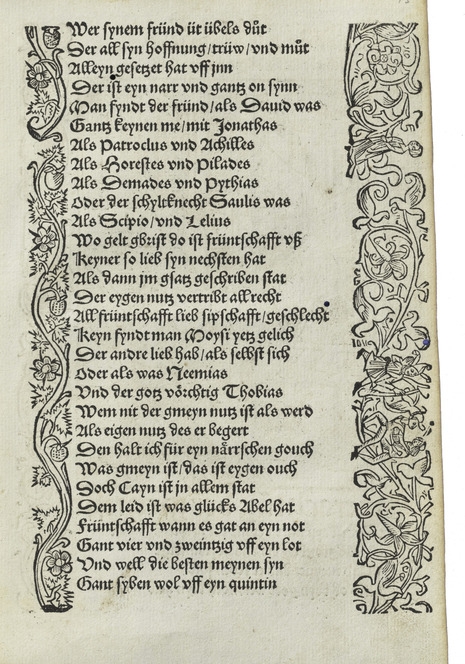 Wer synem fründ üt übels důt
Der all syn hoffnung/trüw/vnd můt
Alleyn gesetzet hat vff jnn
Der ist eyn narr vnd gantz on synn
Man fyndt der fründ/als Dauid was
Gantz keynen me/mit Jonathas
Als Patroclus vnd Achilles
Als Horestes vnd Pilades
Als Demades vnd Pythias
Oder der schyltknecht Saulis was
Als Scipio/vnd Lelius
Wo gelt gbrist do ist früntschafft vß
Keyner so lieb syn nechsten hat
Als dann jm gsatz geschriben stat
Der eygen nutz vertribt all recht
All früntschafft lieb sipschafft/geschlecht
Keyn fyndt man Moysi yetz gelich
Der andre lieb hab/als selbst sich
Oder als was Neemias
Vnd der gotz vörchtig Thobias
Wem nit der gmeyn nutz ist als werd
Als eigen nutz des er begert
Den halt ich für eyn närrschen gouch
Was gmeyn ist/das ist eygen ouch
Doch Cayn ist jn allem stat
Dem leid ist was glücks Abel hat
Früntschafft wann es gat an eyn not
Gant vier vnd zweintzig vff eyn lot
Vnd well die besten meynen syn
Gant syben wol vff eyn quintin